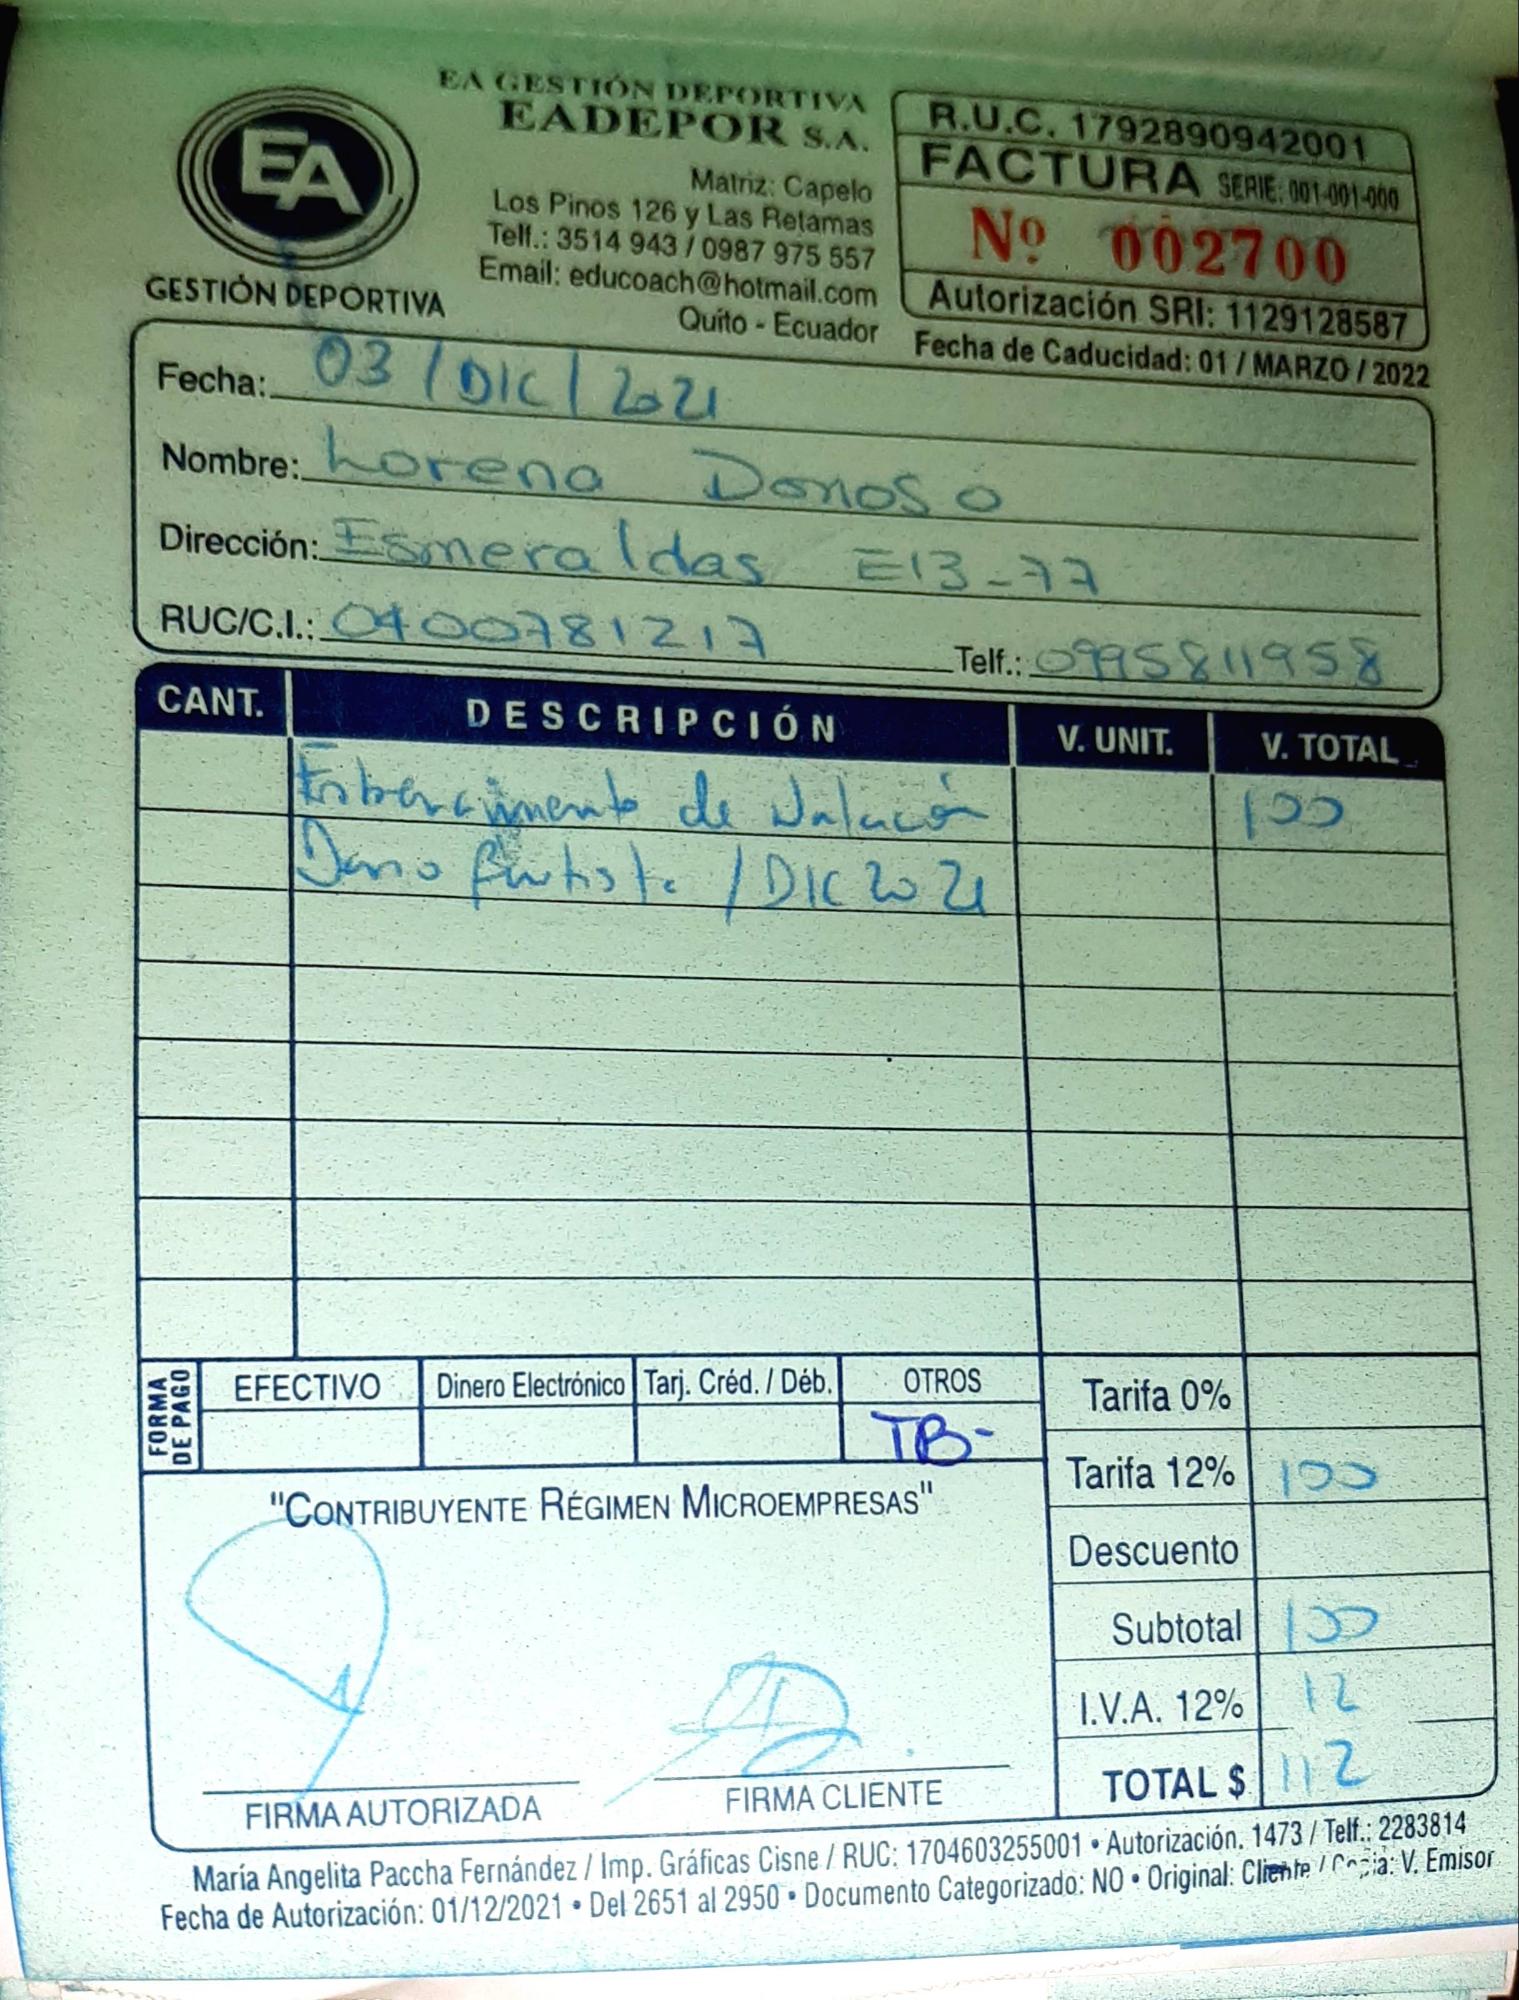 EA GESTIÓN DEPORTIVA
EADEPOR S.A.
EA
GESTIÓN DEPORTIVA
Matriz: Capelo
Los Pinos 126 y Las Retamas
Telf.: 3514 943 / 0987 975 557
Email: educoach@hotmail.com
Quito - Ecuador
R.U.C. 1792890942001
FACTURA SERIE: 001-001-000
Nº 002700
Autorización SRI: 1129128587
Fecha de Caducidad: 01 / MARZO / 2022
Fecha: 03 / DIC / 2021
Nombre: Lorena Donoso
Dirección: Esmeraldas E13-77
RUC/C.I.: 0400781217 Telf.: 0995811958
CANT. DESCRIPCIÓN V. UNIT. V. TOTAL
de Natación 100
/ DIC 2021
FORMA DE PAGO
EFECTIVO Dinero Electrónico Tarj. Créd. / Déb. OTROS
TB-
Tarifa 0%
Tarifa 12% 100
Descuento
Subtotal 100
I.V.A. 12% 12
TOTAL $ 112
"CONTRIBUYENTE RÉGIMEN MICROEMPRESAS"
FIRMA AUTORIZADA FIRMA CLIENTE
María Angelita Paccha Fernández / Imp. Gráficas Cisne / RUC: 1704603255001 • Autorización. 1473 / Telf.: 2283814
Fecha de Autorización: 01/12/2021 • Del 2651 al 2950 • Documento Categorizado: NO • Original: Cliente / Copia: V. Emisor